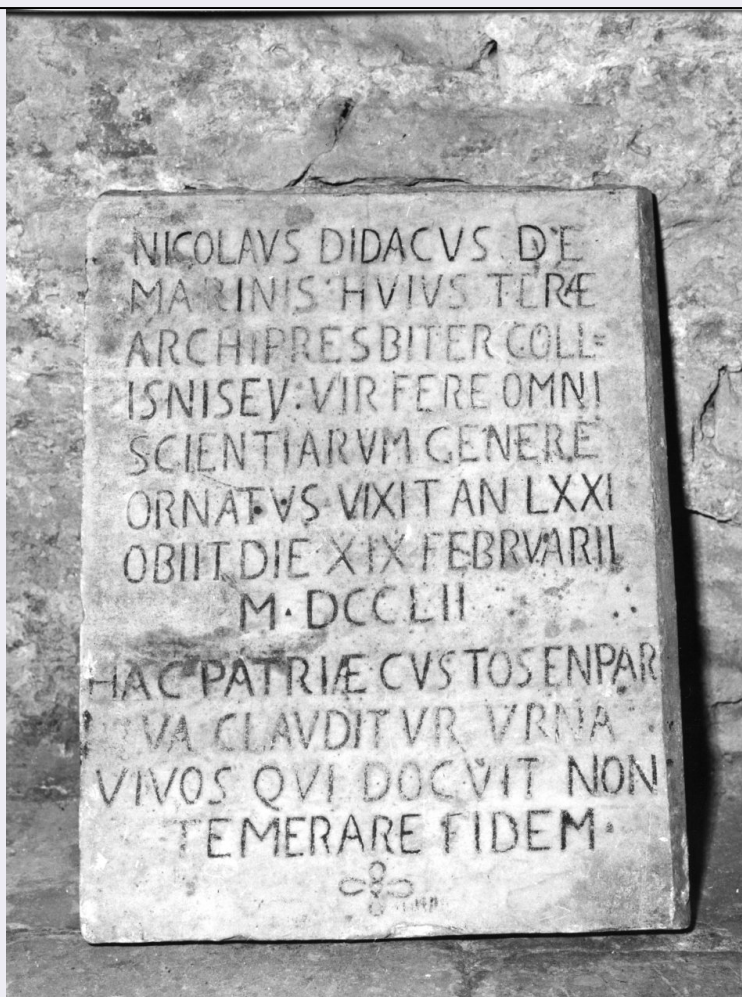 NICOLAVS DIDACVS DE
MARINIS HVIVS TERÆ
ARCHIPRESBITER COLL=
ISNISEV: VIR FERE OMNI
SCIENTIARVM GENERE
ORNATVS VIXIT AN LXXI
OBIIT DIE XIX FEBRVARII
M·DCCLII
HAC PATRIÆ CVSTOS EN PAR
VA CLAVDITVR VRNA
VIVOS QVI DOCVIT NON
TEMERARE FIDEM·